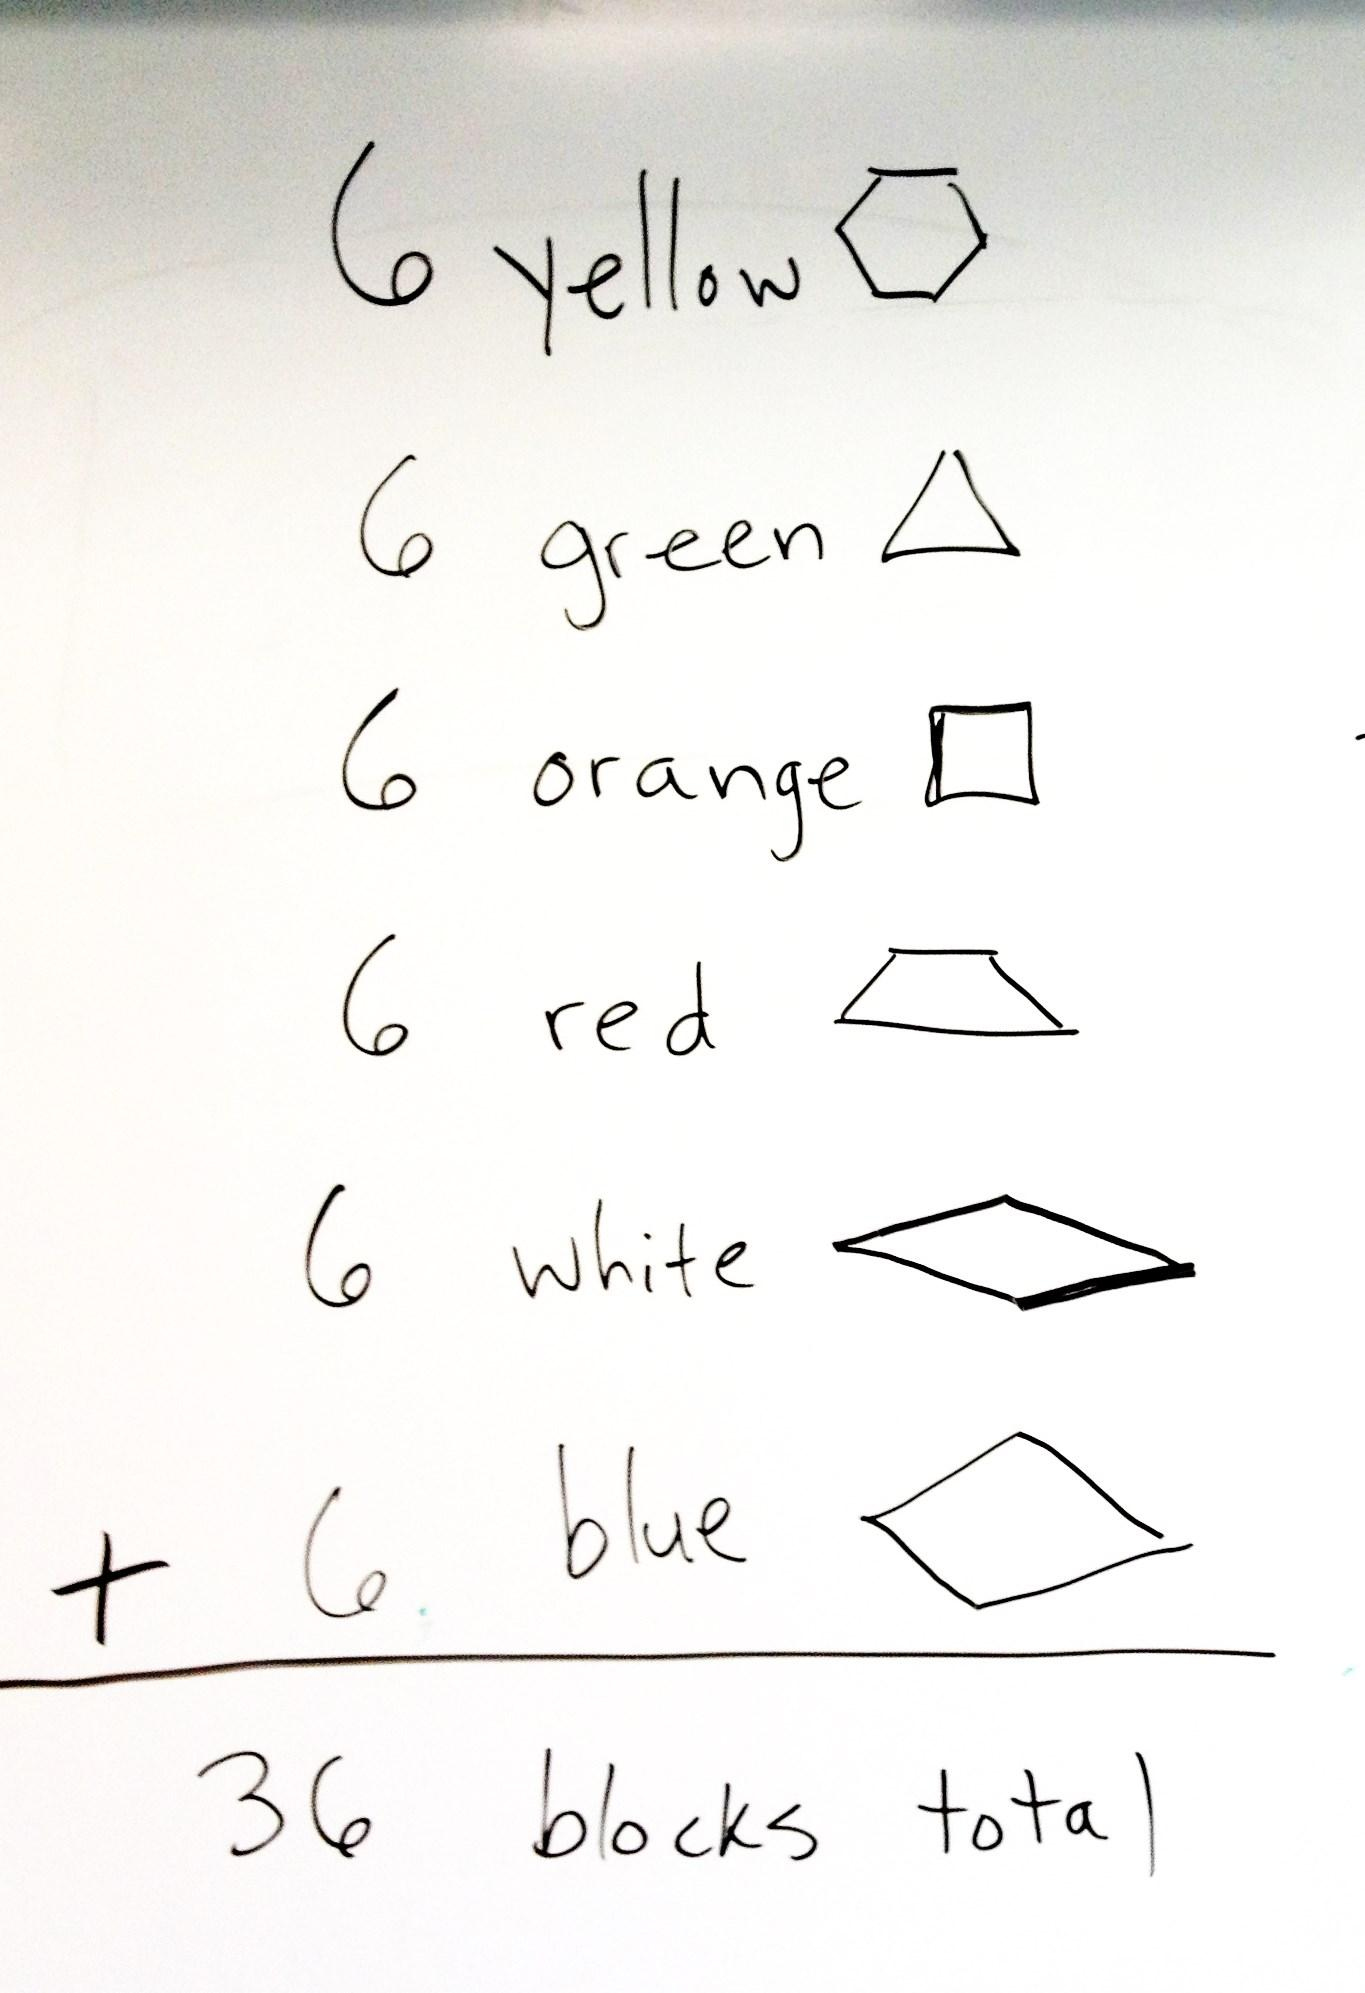 6 yellow
6 green
6 orange
6 red
6 white
+ 6 blue
36 blocks total